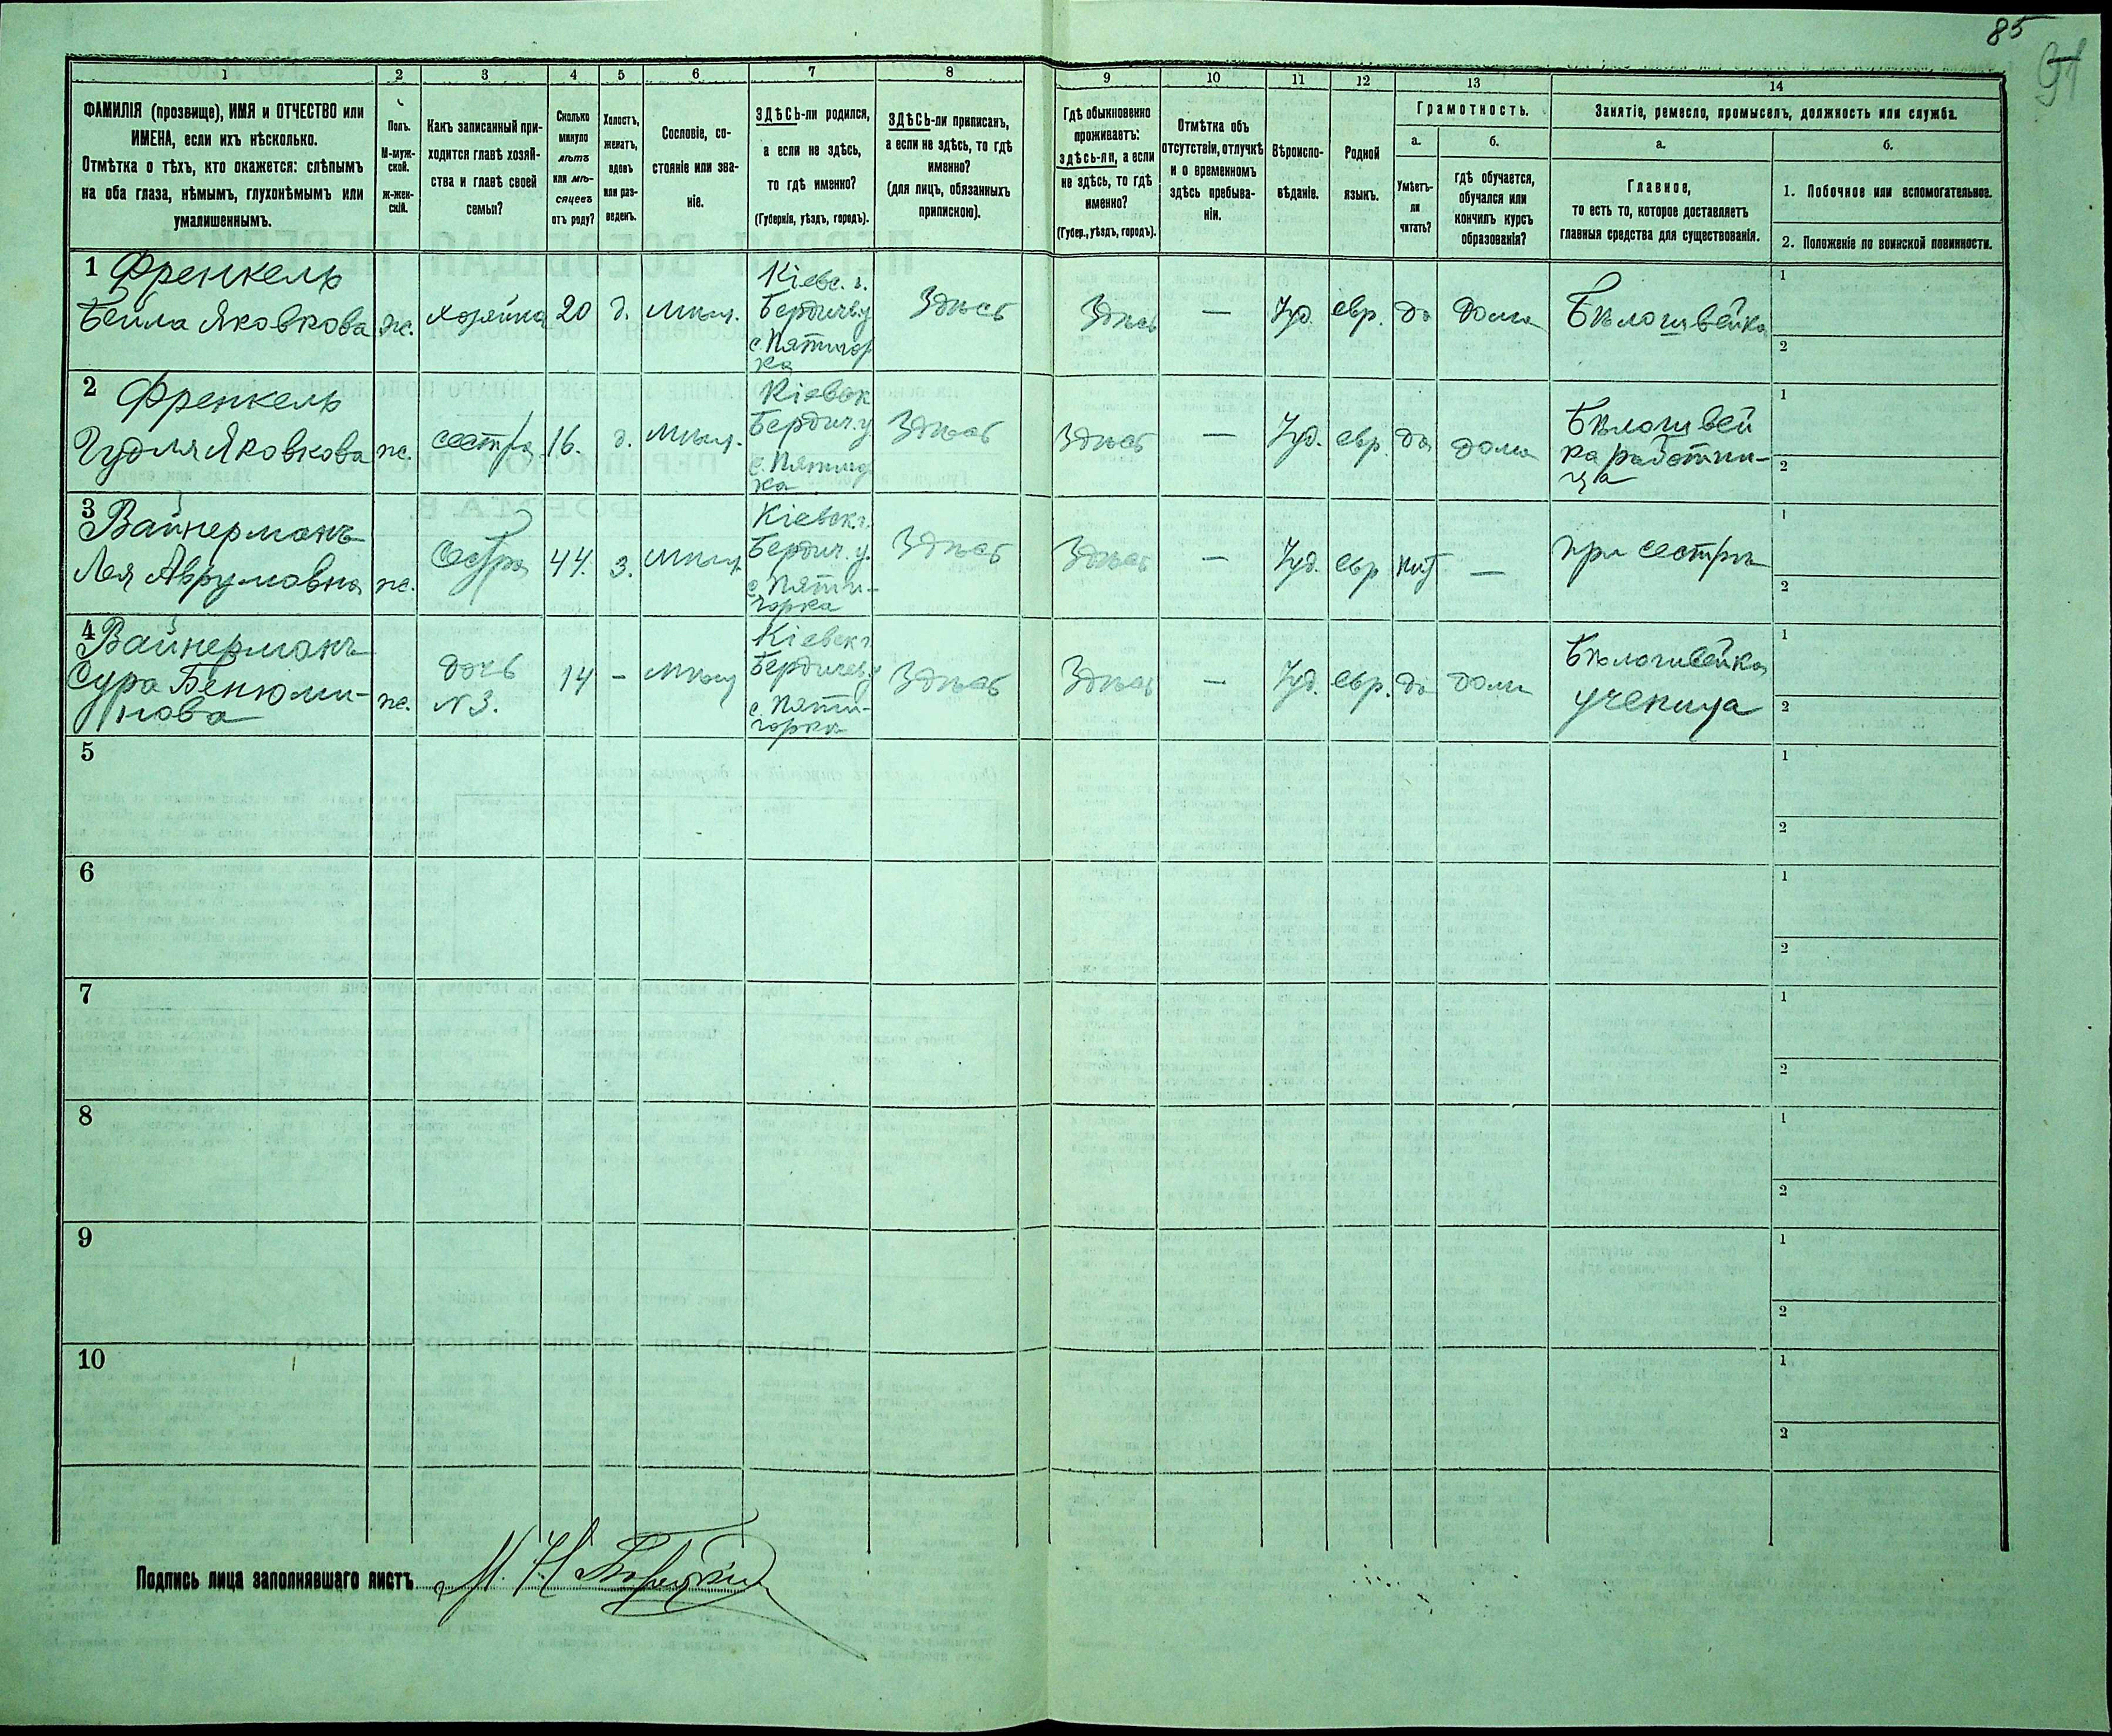 85
91
1 2 3 4 5 6 7 8 9 10 11 12 13 14
ФАМИЛІЯ (прозвище), ИМЯ и ОТЧЕСТВО или
ИМЕНА, если ихъ нѣсколько.
Отмѣтка о тѣхъ, кто окажется: слѣпымъ
на оба глаза, нѣмымъ, глухонѣмымъ или
умалишеннымъ.
Полъ.
М-муж-
ской.
Ж-жен-
скій.
Какъ записанный при-
ходится главѣ хозяй-
ства и главѣ своей
семьи?
Сколько
минуло
лѣтъ
или мѣ-
сяцевъ
отъ роду?
Холостъ,
женатъ,
вдовъ
или раз-
веденъ.
Сословіе, со-
стояніе или зва-
ніе.
ЗДѢСЬ-ли родился,
а если не здѣсь,
то гдѣ именно?
(Губернія, уѣздъ, городъ).
ЗДѢСЬ-ли приписанъ,
а если не здѣсь, то гдѣ
именно?
(для лицъ, обязанныхъ
припискою).
Гдѣ обыкновенно
проживаетъ:
здѣсь-ли, а если
не здѣсь, то гдѣ
именно?
(Губер., уѣздъ, городъ).
Отмѣтка объ
отсутствіи, отлучкѣ
и о временномъ
здѣсь пребыва-
ніи.
Вѣроиспо-
вѣданіе.
Родной
языкъ.
Грамотность.
а.
Умѣетъ-
ли
читать?
б.
гдѣ обучается,
обучался или
кончилъ курсъ
образованія?
Занятіе, ремесло, промыселъ, должность или служба.
а.
Главное,
то есть то, которое доставляетъ
главныя средства для существованія.
б.
1. Побочное или вспомогательное.
2. Положеніе по воинской повинности.
1 Френкель
Бейла Яковкова
ж.
хозяйка
20
д.
мѣщ.
Кіевс. г.
Бердичв.у
с. Пятигор
ка
Здѣсь
Здѣсь
—
Іуд.
евр.
да
дома
Бѣлошвейка
1
2
2 Френкель
Гудля Яковкова
ж.
сестра
16.
д.
мѣщ.
Кіевск
Бердич.у
Здѣсь
Здѣсь
—
Іуд.
евр.
да
дома
Бѣлошвей
ка работни-
ца
1
2
3 Вайнерманъ
Лея Аврумовна
ж.
Сестра
44.
з.
мѣщ.
Кіевск.г.
Бердич. у.
с. Пяти-
горка
Здѣсь
Здѣсь
—
Іуд.
евр
нѣт
—
при сестрѣ
1
2
4 Вайнерманъ
Сура Бенюми-
нова
ж.
дочь
N 3.
14
-
мѣщ
Кіевск г
Бердичев.у
с. Пяти-
горка
Здѣсь
Здѣсь
—
Іуд.
евр.
да
дома
Бѣлошвейка
ученица
1
2
5
1
2
6
1
2
7
1
2
8
1
2
9
1
2
10
1
2
Подпись лица заполнявшаго листъ